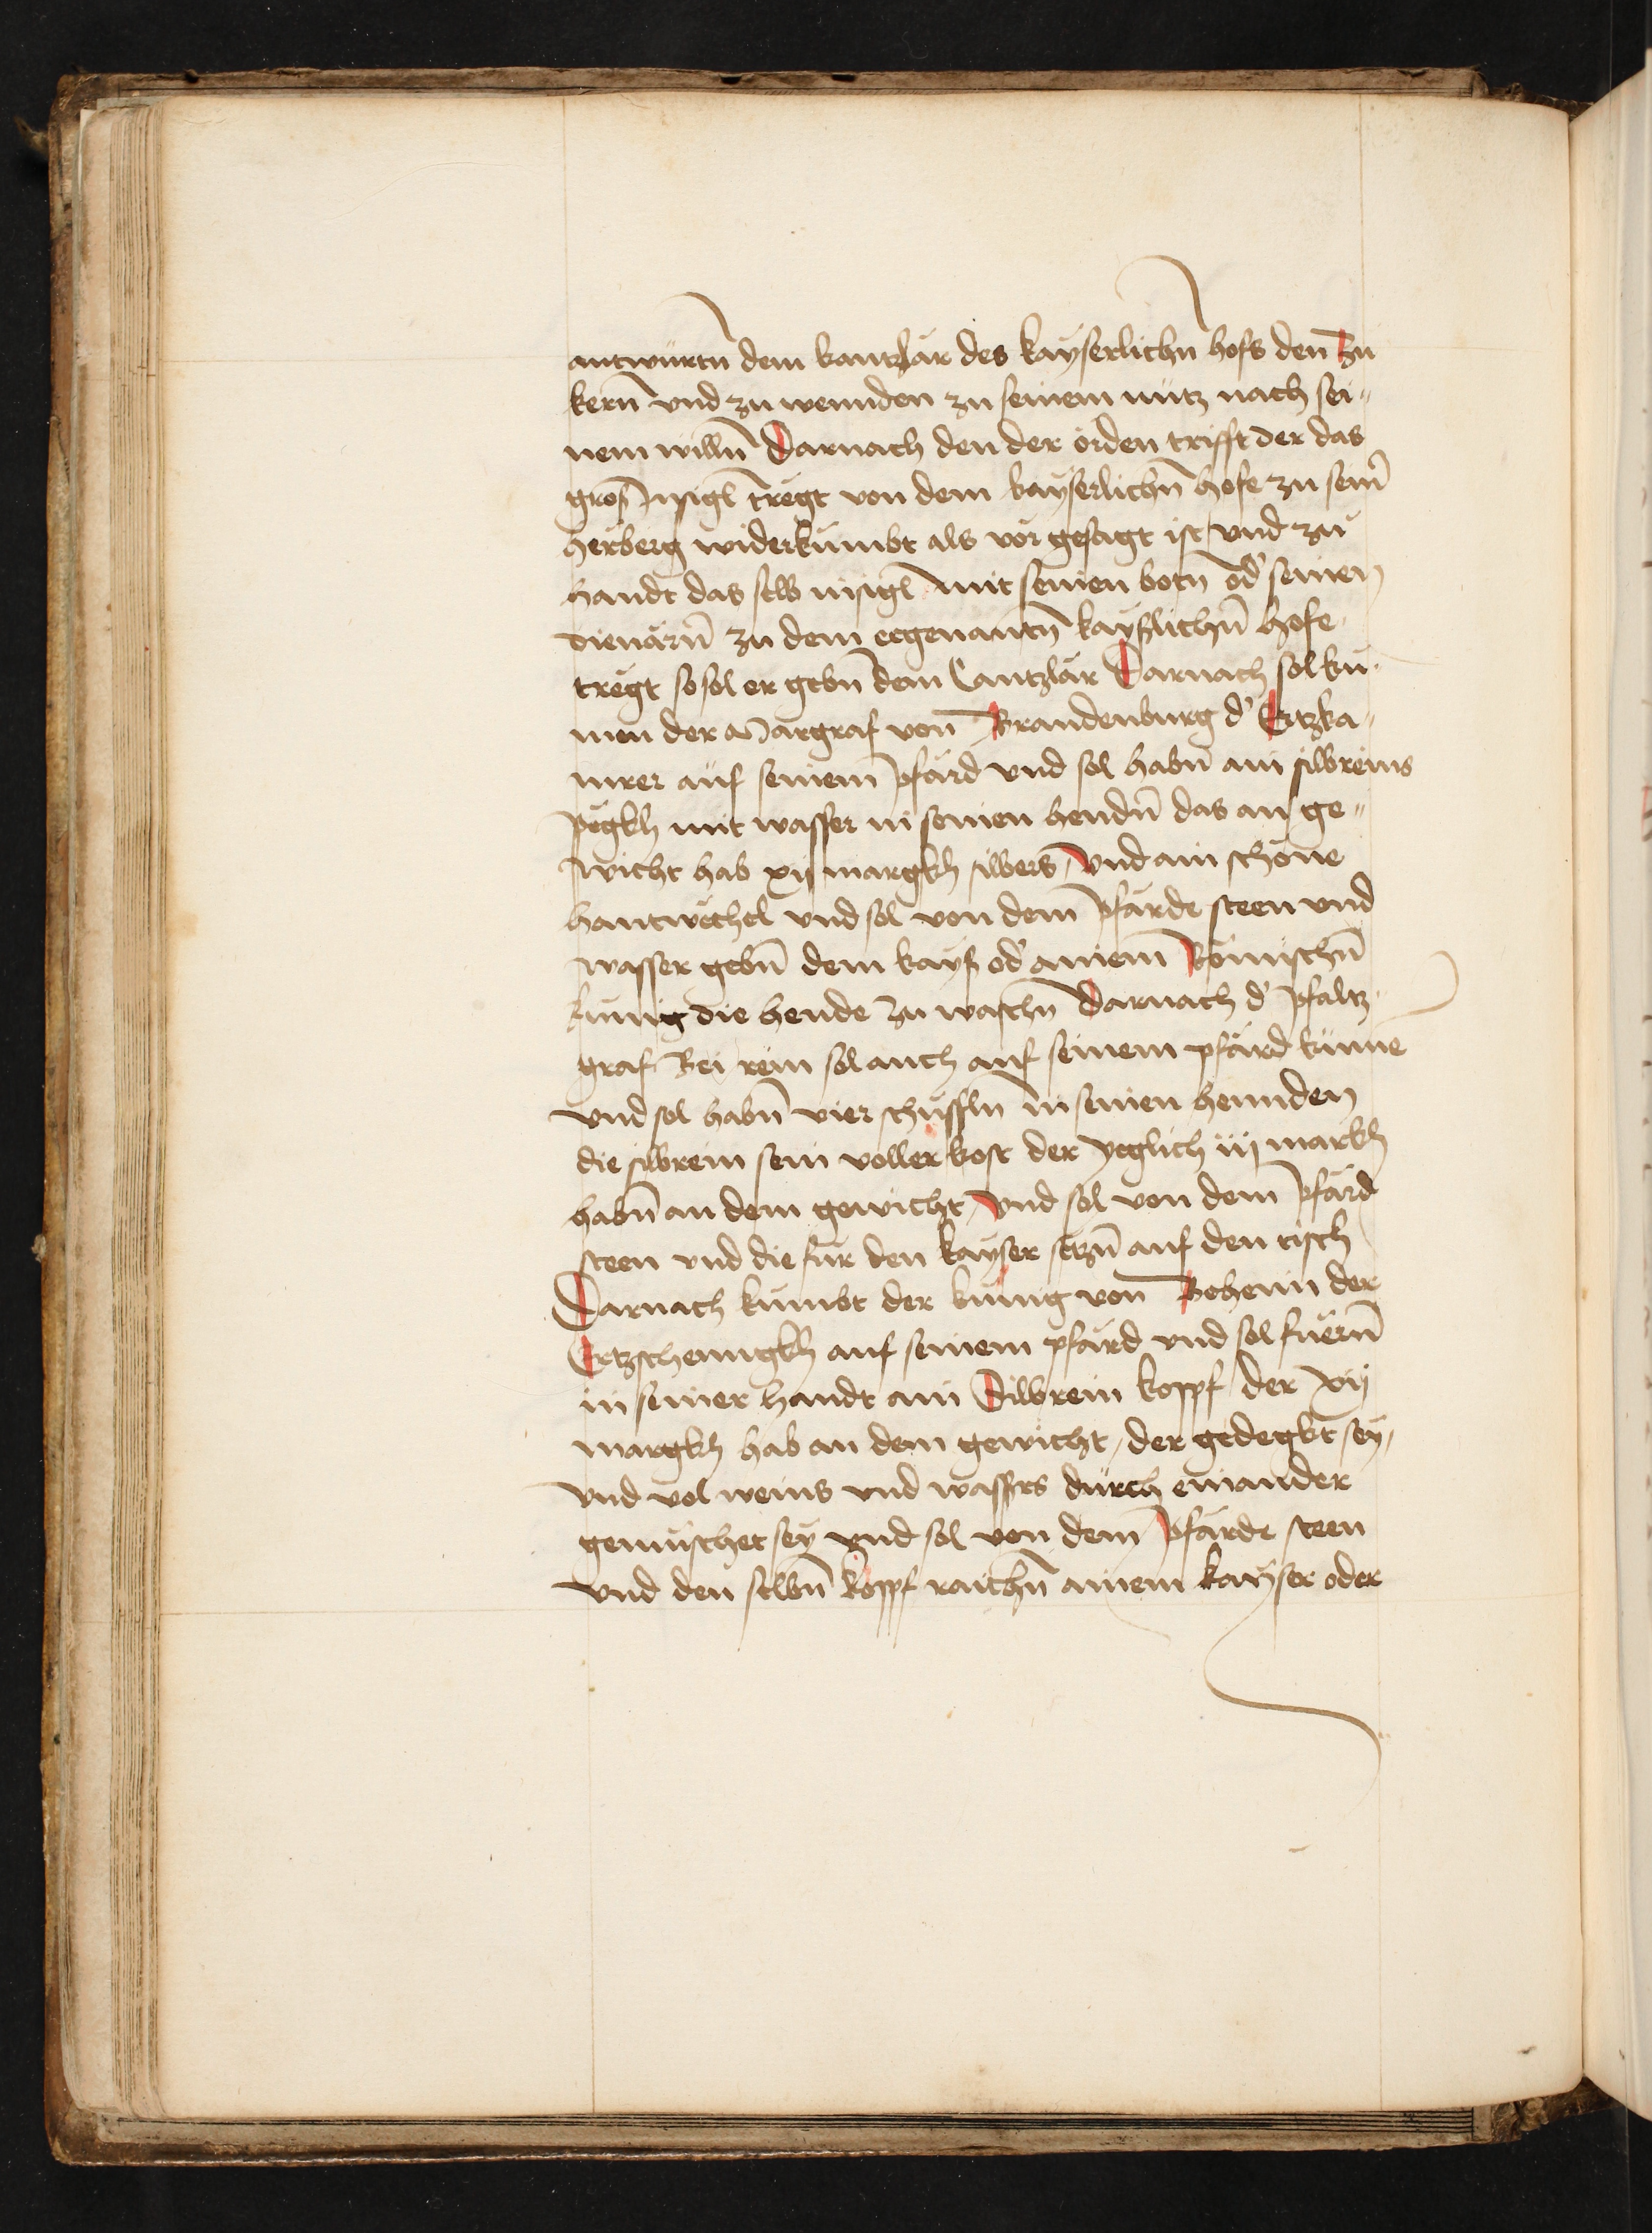 antwürtn̄ dem kantzlär des kayserlichn̄ hofs den Zu
kern̄ vnd zu wennden zu seinem nutz nach sei„
nem willn̄ Darnach den der orden trifft der das
gros Jnsigl tregt von dem kayserlichn̄ hofe zu seīm
herberg widerkumbt als vor gesagt ist vnd zu
handt das selb insigl mit seinen botn̄ od' seinen
dienärn̄ zu dem eegenantn̄ kayslichn̄ hofe
tregt so sol er gebn̄ dem Cantzlär Darnach sol ku„
men der Margraf von Brandenburg d' Ertzka„
mrer auf seinem pfärd vnd sol habn̄ ain silbreins
pegkh mit wasser in seinen hendn̄ das an ge„
wicht hab xij margkh silbers, vnd ain schone
hantwechel vnd sol von dem pfärde steen vnd
wasser gebn̄ dem kays od' ainem Römischn̄
kunig die hende Zu waschn̄ Darnach d' pfaltz„
graf Bei rein sol auch auf seinem pfärd kumē
vnd sol habn̄ vier schussln̄ in seinen hennden
die silbrein sein voller kost der yeglich iij markh
habn̄ an dem gewicht, vnd sol von dem pfärd
steen vnd die für den kayser setzn̄ auf den tisch
Darnach kumbt der kunig von Behein der
Ertzschenngkh auf seinem pfärd vnd sol fuern̄
in seiner handt ain Silbrein koppf der xij
margkh hab an dem gewicht, der gedegkt sey,
vnd vol weins vnd wassers durch einander
gemischet sey vnd sol von dem pfärde steen
vnd den selbn̄ koppf raichn̄ ainem kayser oder